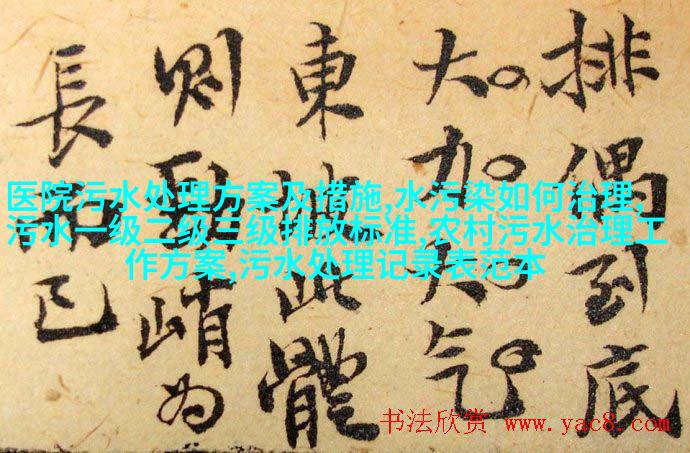 排偶到底
大。力。大。气。
東坡此體
則峭為
長而已
医院污水处理方案及措施,水污染如何治理,
污水一级二级三级排放标准,农村污水治理工
作方案,污水处理记录表范本
书法欣赏 www.yac8.com